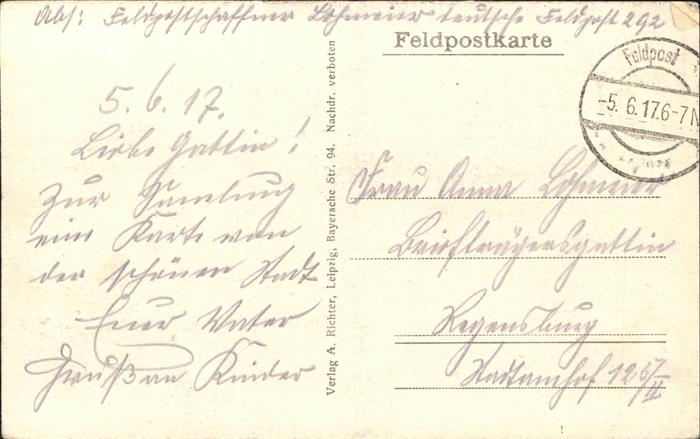 Abs: Feldpostschaffner Lohmeier deutsche Feldpost 292
Feldpostkarte
Feldpost
-5.6.17.6-7N
5.6.17.
Liebe Gattin!
Zur Samlung
eine Karte von
der schönen Stadt
Euer Vater
Gruß an Kinder
Verlag A. Richter, Leipzig, Bayersche Str. 94. Nachdr. verboten
Frau Anna Lohmeier
Briefträgersgattin
Regensburg
Stadtamhof 12 67/II